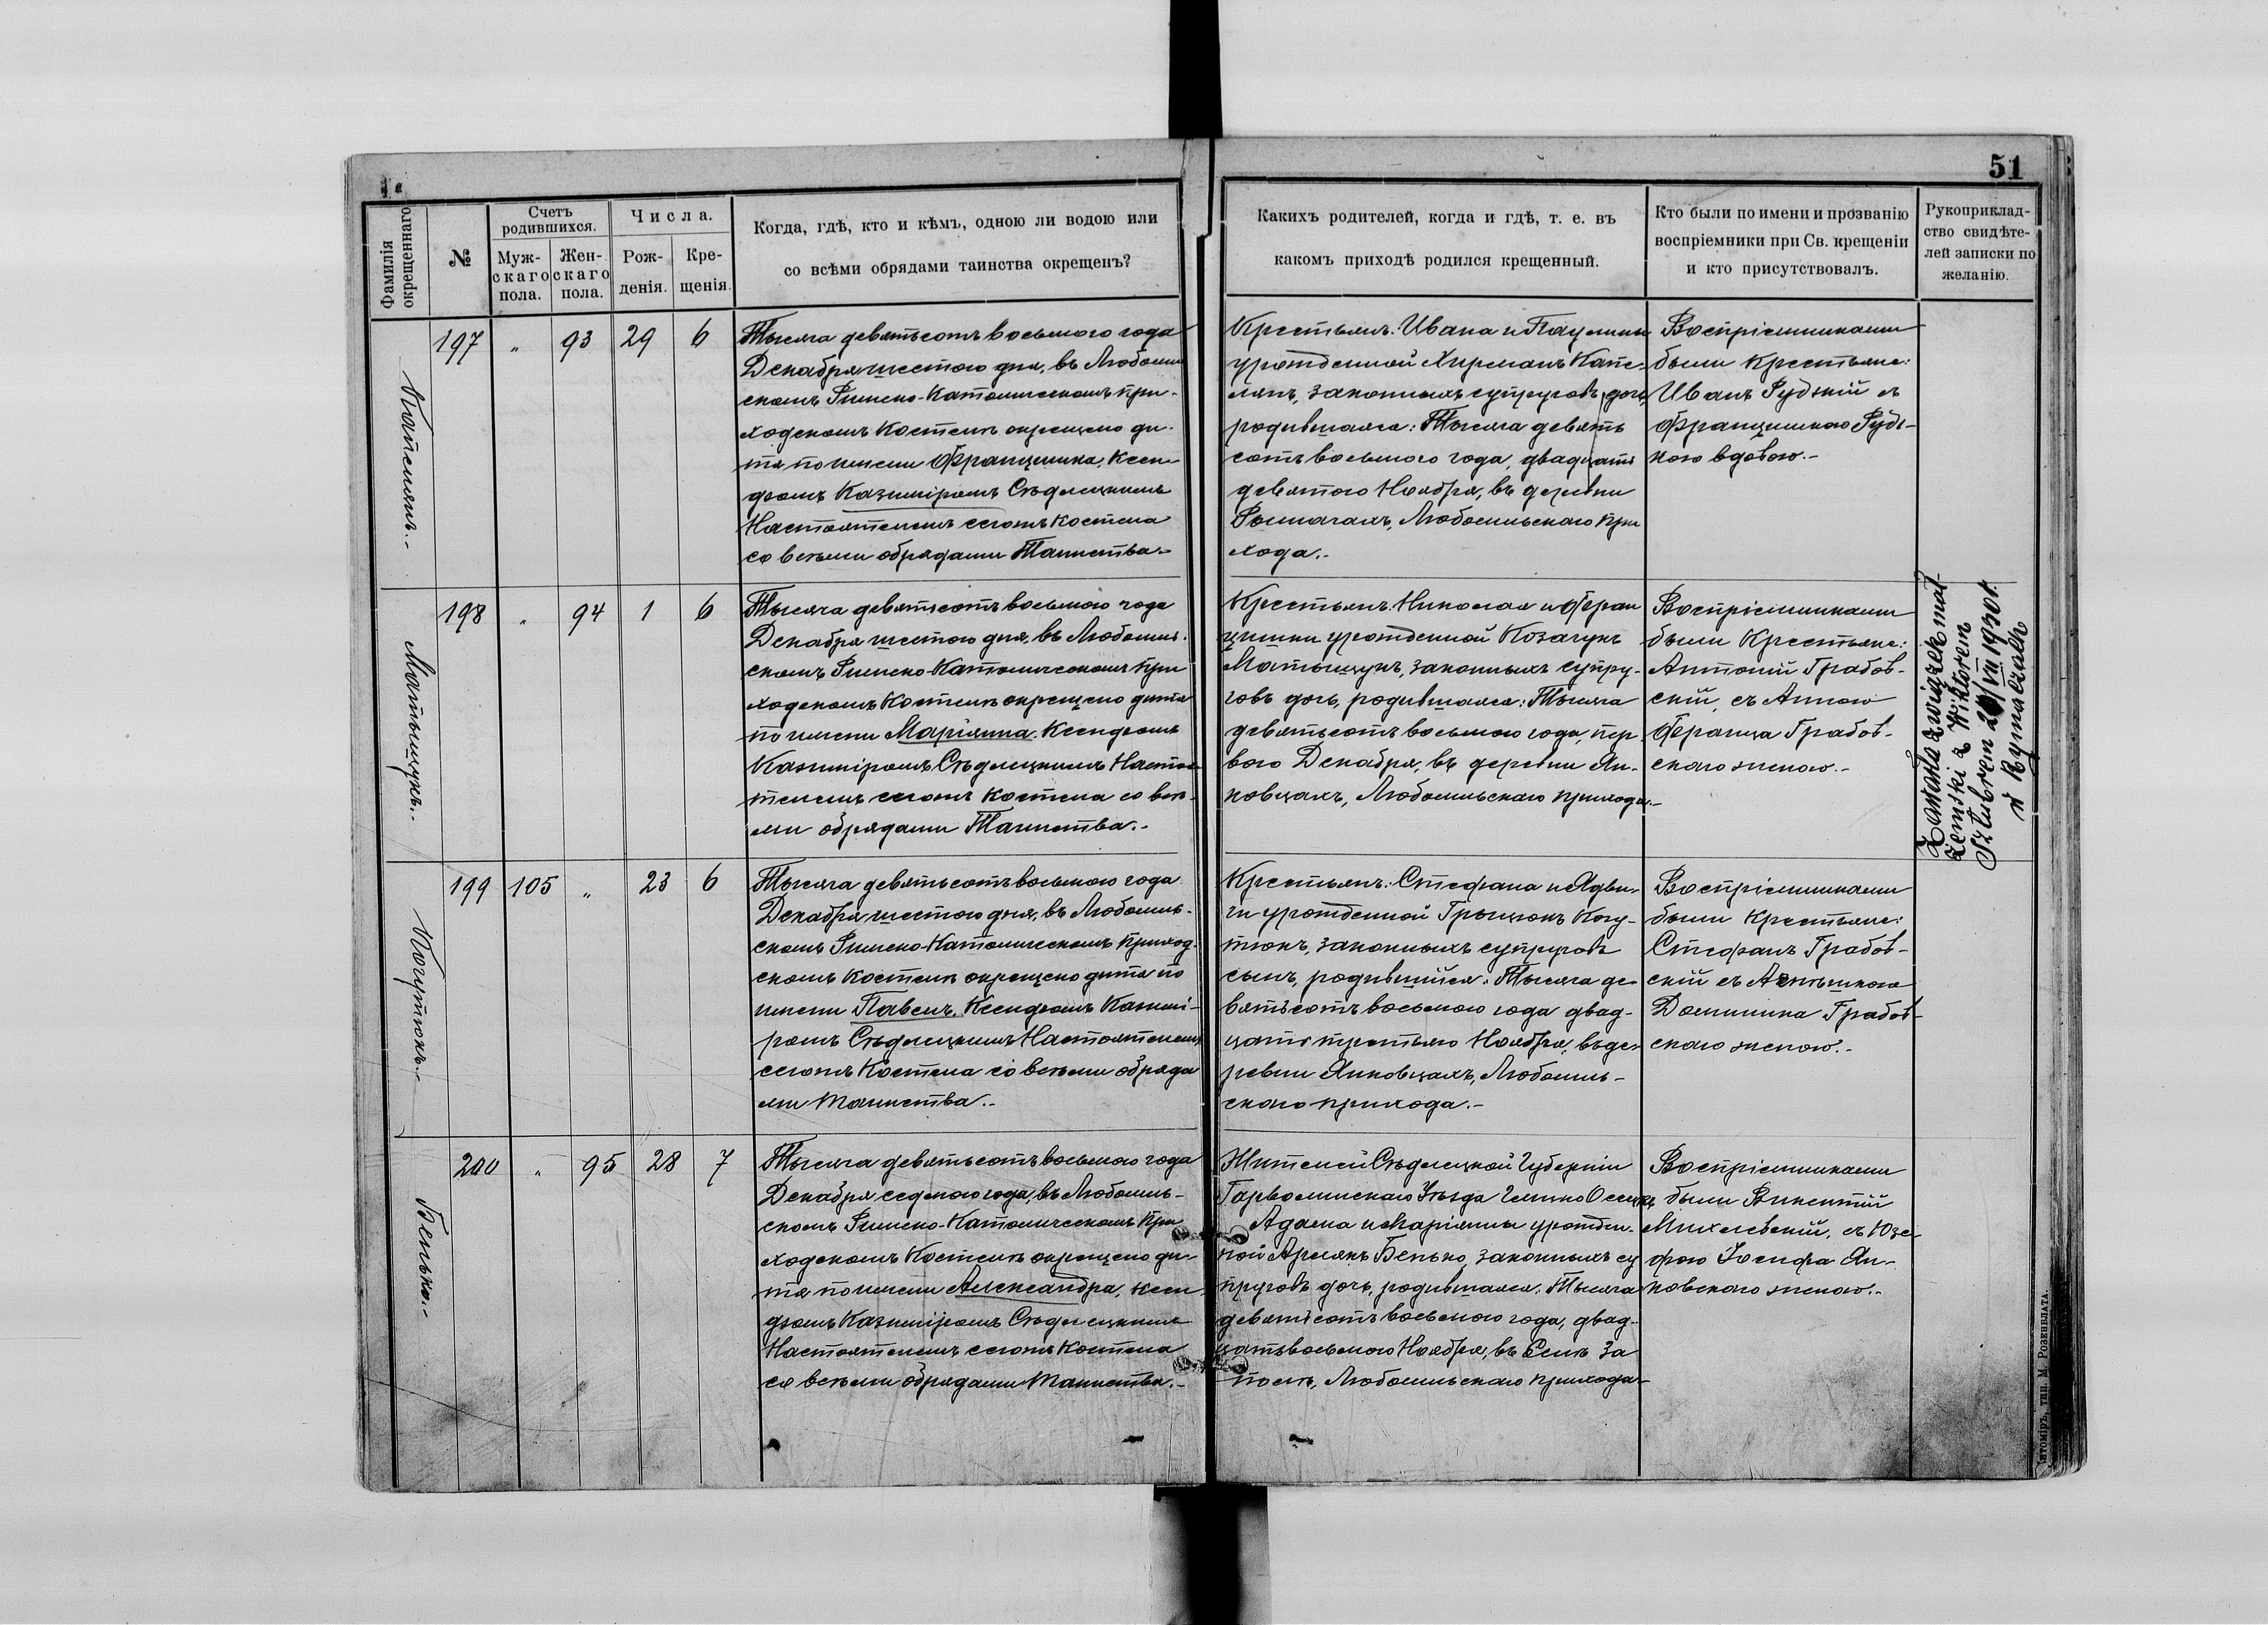 51
Фамилія окрещеннаго
№
Счетъ родившихся.
Муж-скаго пола.
Жен-скаго пола.
Числа.
Рож-денія.
Кре-щенія.
Когда, гдѣ, кто и кѣмъ, одною ли водою или
со всѣми обрядами таинства окрещенъ?
Какихъ родителей, когда и гдѣ, т. е. въ
какомъ приходѣ родился крещенный.
Кто были по имени и прозванію
воспріемники при Св. крещеніи
и кто присутствовалъ.
Рукоприклад-
ство свидѣте-
лей записки по
желанію.
197 " 93 29 6
Тысяча девятьсотъ восьмого года
Декабря шестого дня, въ Любомль
скомъ Римско-Католическомъ при-
ходскомъ Костелѣ окрещено ди-
тя по имени Францишка, Ксен-
дзомъ Казиміромъ Сѣдлецкимъ
Настоятелемъ сегожъ Костела
со всѣми обрядами Таинства.-
Крестьянъ: Ивана и Паулины
урожденной
законныхъ супруговъ дочь,
родившаяся: Тысяча девять
сотъ восьмого года, двадцать
девятого Ноября, въ деревни
Любомльскаго при
хода.-
Воспріемниками
были Крестьяне:
Иванъ Рудзкій съ
Францишкою Рудз-
кою вдовою.-
198 " 94 1 6
Матыщукъ.-
Тысяча девятьсотъ восьмого года
Декабря шестого дня, въ Любомль-
скомъ Римско-Католическомъ при
ходскомъ Костелѣ окрещено дитя
по имени Маріянна. Ксендзомъ
Казиміромъ Сѣдлецкимъ Настоя
телемъ сегожъ Костела со всѣ-
ми обрядами Таинства.-
Крестьянъ: Николая и Фран
цишки урожденной Козачукъ
Матыщукъ, законныхъ супру-
говъ дочь, родившаяся: Тысяча
девятьсотъ восьмого года, пер
вого Декабря, въ деревни Ян-
ковцахъ, Любомльскаго прихода.-
Воспріемниками
были Крестьяне:
Антоній Грабов-
скій, съ Анною
Франца Грабов-
скаго женою.-
Zawarła związek mał-
żeński z Wiktorem
VIII 1930 r.
w Rymaczach
199 105 " 23 6
Когутюкъ.-
Тысяча девятьсотъ восьмого года
Декабря шестого дня, въ Любомль-
скомъ Римско-Католическомъ Приход-
скомъ Костелѣ окрещено дитя по
имени Павелъ. Ксендзомъ Казимі-
ромъ Сѣдлецкимъ Настоятелемъ
сегожъ Костела со всѣми обряда
ми Таинства.-
Крестьянъ: Стефана и Ядви-
ги урожденной Грыцюкъ Когу-
тюкъ, законныхъ супруговъ
сынъ, родившійся: Тысяча де-
вятьсотъ восьмого года двад-
цать третьяго Ноября, въ де-
ревни Янковцахъ, Любомль-
скаго прихода.-
Воспріемниками
были Крестьяне:
Стефанъ Грабов-
скій съ
Доминика Грабов-
скаго женою.-
200 " 95 28 7
Бенько.-
Тысяча девятьсотъ восьмого года
Декабря седмого года, въ Любомль-
скомъ Римско-Католическомъ При
ходскомъ Костелѣ окрещено ди-
тя по имени Александра, Ксен
дзомъ Казиміромъ Сѣдлецкимъ
Настоятелемъ сегожъ Костела
со всѣми обрядами Таинства.-
Жителей Сѣдлецкой Губерніи
Гарволинскаго Уѣзда
Адама и Маріянны урожден-
ной Бенько, законныхъ су
пруговъ дочь, родившаяся: Тысяча
девятьсотъ восьмого года, двад-
цать восьмого Ноября, въ Селѣ За
полѣ, Любомльскаго прихода-
Воспріемниками
были Викентій
Михлевскій, съ Юзе-
фою Іосифа Ян-
ковскаго женою.-
тип. М. Розенблата.